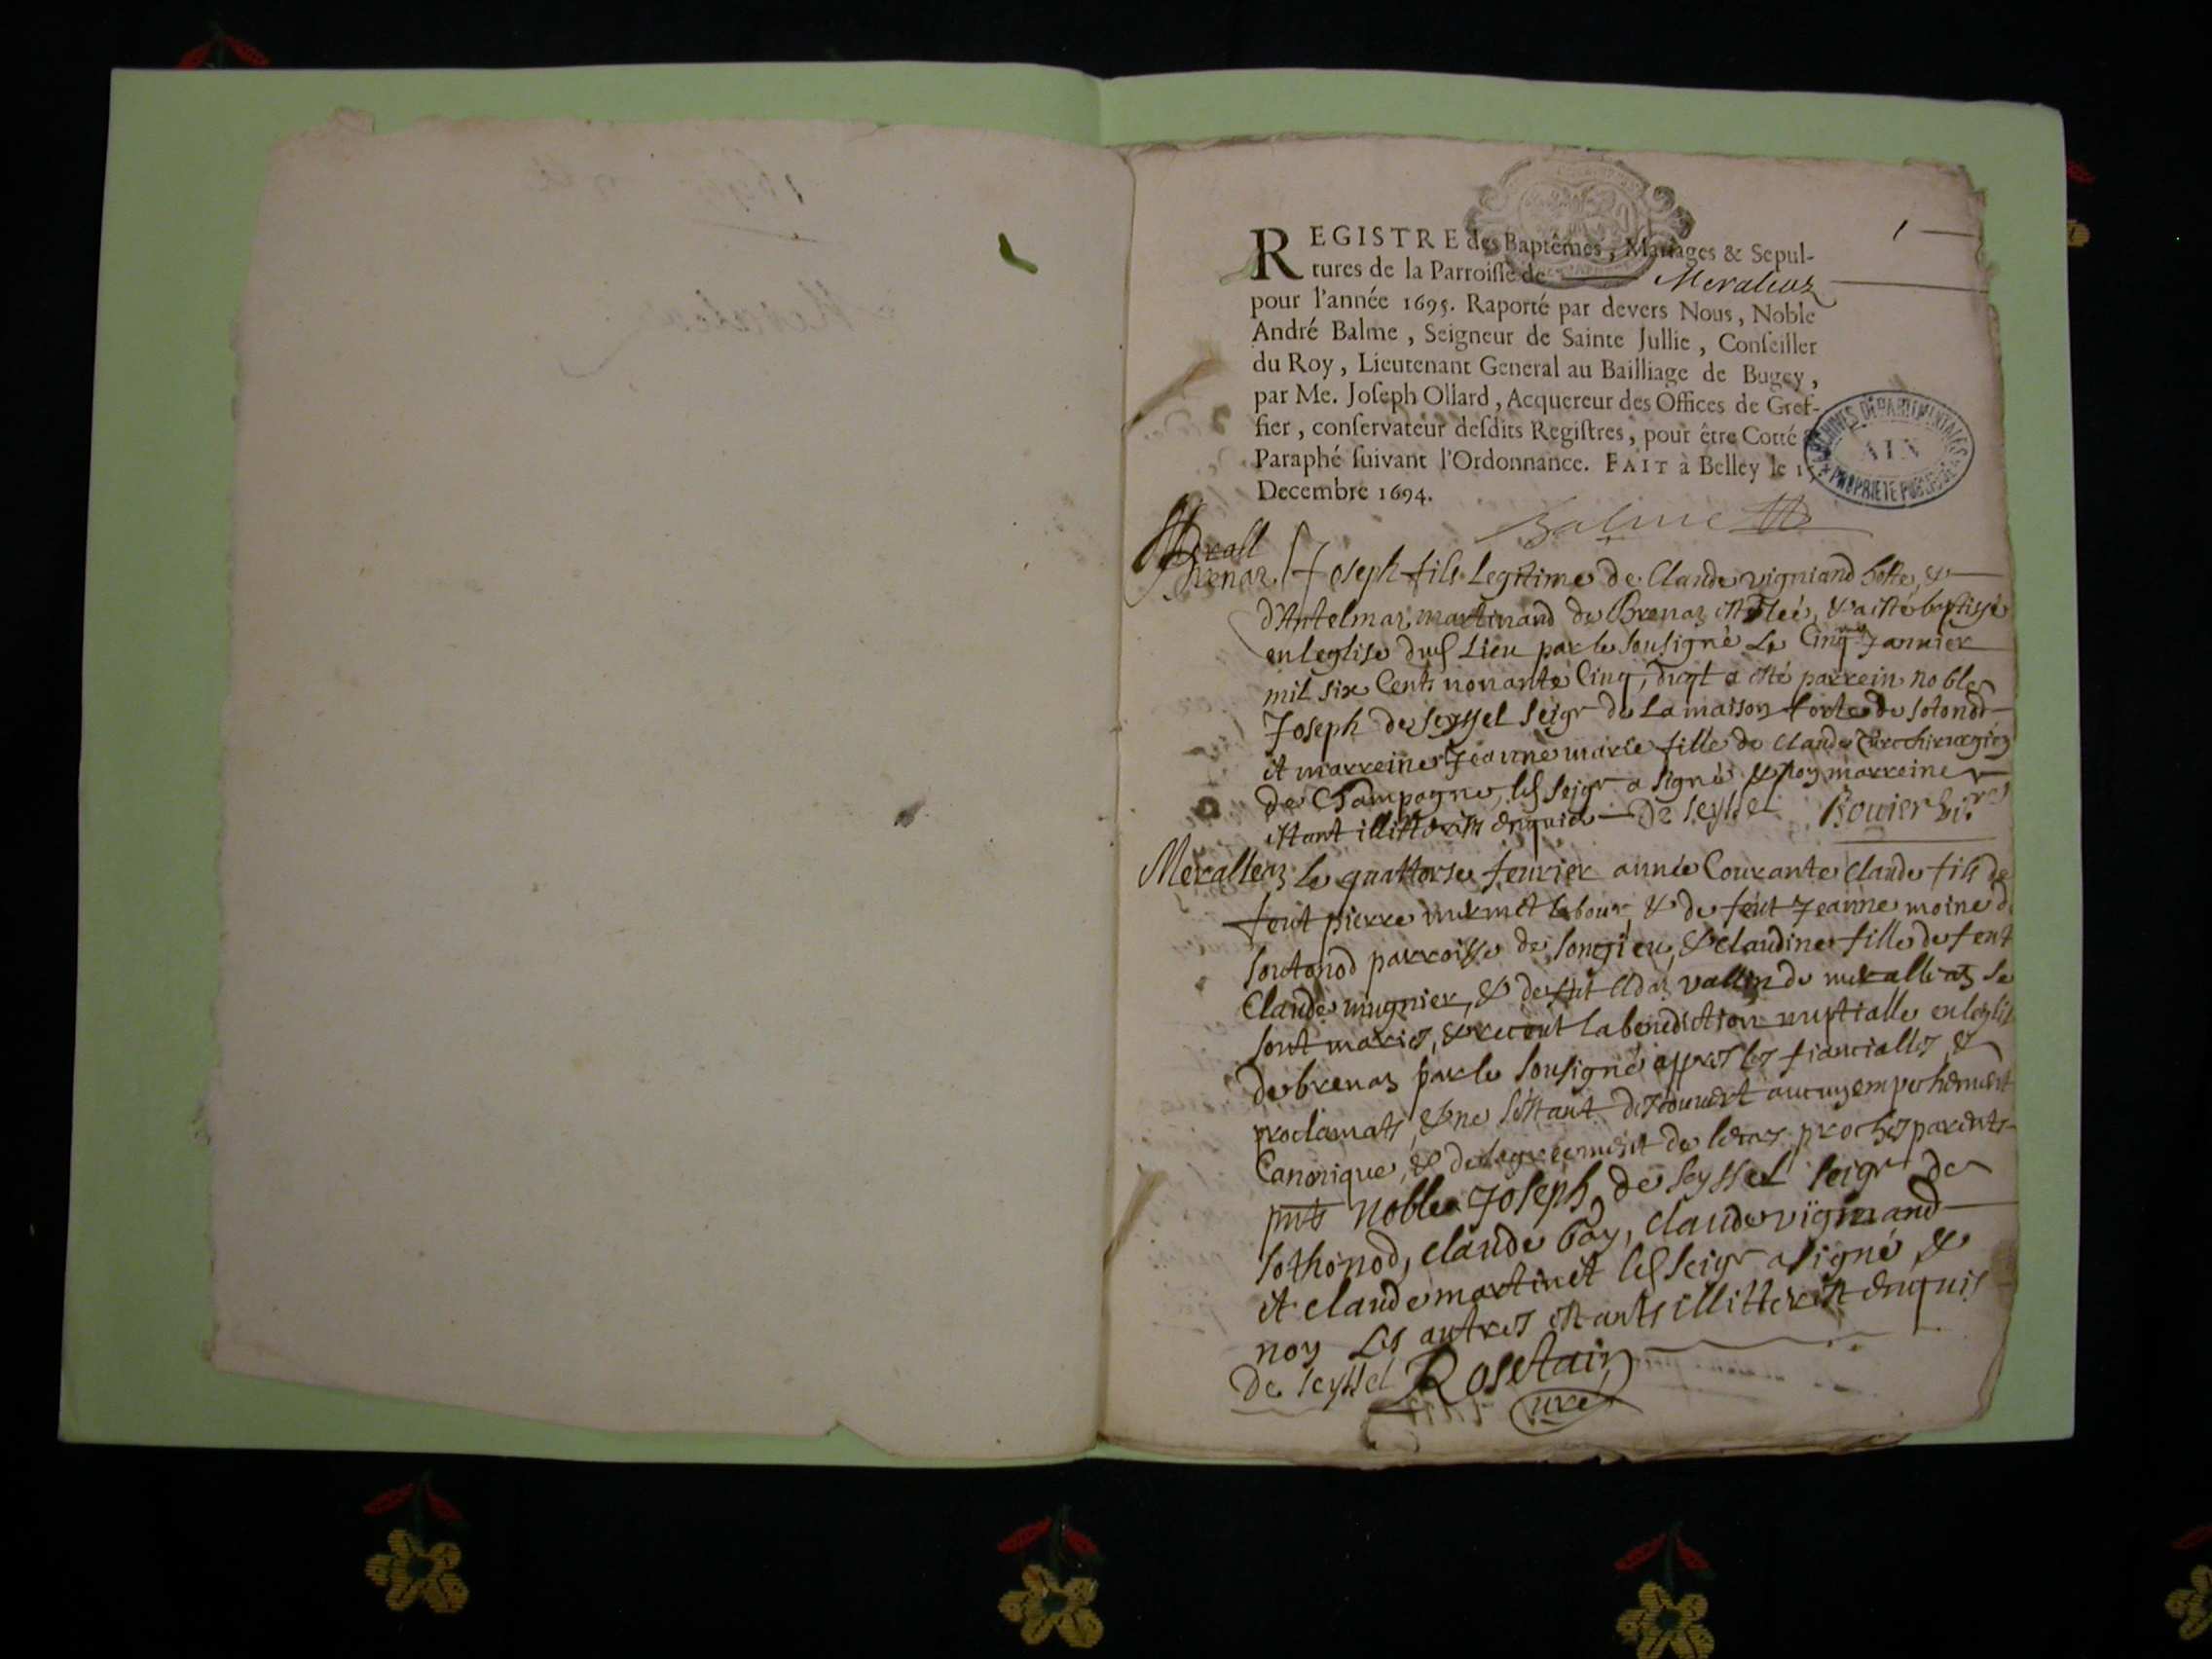 1
REGISTRE des Baptêmes, Mariages & Sepul-
tures de la Parroisse de Meraleaz
pour l'année 1695. Raporté par devers Nous, Noble
André Balme, Seigneur de Sainte Jullie, Conseiller
du Roy, Lieutenant General au Bailliage de Bugey,
par Me. Joseph Ollard, Acquereur des Offices de Gref-
fier, conservateur desdits Registres, pour être Cotté &
Paraphé suivant l'Ordonnance. FAIT à Belley le 15
Decembre 1694.
ARCHIVES DÉPARTEMENTALES
AIN
PROPRIÉTÉ PUBLIQUE
Balme
Brenaz Joseph fils legitime de Claude vigniand hoste, &
d'Antelmaz martinand de Brenaz est né, & a isté baptisé
en leglise dud Lieu par le sousigné Le Cinq Janvier
mil six Cents nonante Cinq, duql a esté parrein noble
Joseph de seyssel seigr de La maison forte de sotonod
et marreine Jeanne marie fille de Claude chirurgien
de Champagne, led seigr a signé & non marreine
estant illitteris enquis De seyssel Bovier
Meralleaz le quattorse fevrier année Courante Claude fils de
feut pierre mermet labour & de feut Jeanne moine de
soutonod parroisse de songieu, & claudine fille de feut
Claude mugnier, & de feut Claudaz vallin de meralleaz se
sont mariés, & receut la benediction nuptialle en leglise
de brenaz par le sousigné appres les fiancialles, &
proclamats, & ne s'estant descouvert aucun empechement
Canonique, & de legreement de leurs proches parents
pnts noble Joseph de seyssel seigr de
sothonod, claude bay, claude vigniand
et claude martinet led seigr a signé &
non Les autres estants illitteris enquis
De seyssel Rosetain
curé